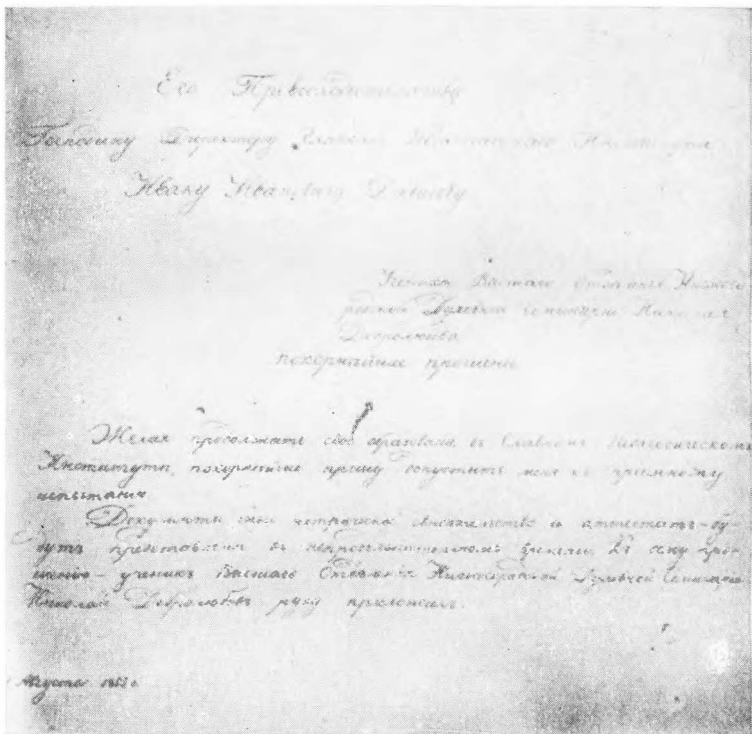 Его Превосходительству
Господину Директору Главнаго Педагогическаго Института
Ивану Ивановичу Давыдову
Ученика Высшаго Отделенія Нижего
родской Духовной Семинаріи Николая
Добролюбова
покорнѣйшее прошеніе
Желая продолжать свое образованіе въ Главномъ Педагогическомъ
Институтѣ, покорнѣйше прошу допустить меня къ пріемному
испытанію
Документы мои метрическое свидѣтельство и аттестатъ - бу-
дутъ представлены въ непродолжительномъ времени. Къ сему про-
шенію - ученикъ Высшаго Отделенія Нижегородской Духовной Семинаріи
Николай Добролюбовъ руку приложилъ.
Августа 1853 г.